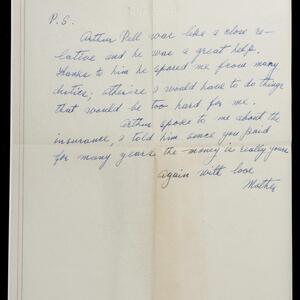 P.S.
Arthur Pell was like a close re-
lative and he was a great help.
Thanks to him he spared me from many
duties; otherise I would have to do things
that would be too hard for me.
Arthur spoke to me about the
insurance, I told him since you paid
for many years the money is really yours
Again with love
Mother